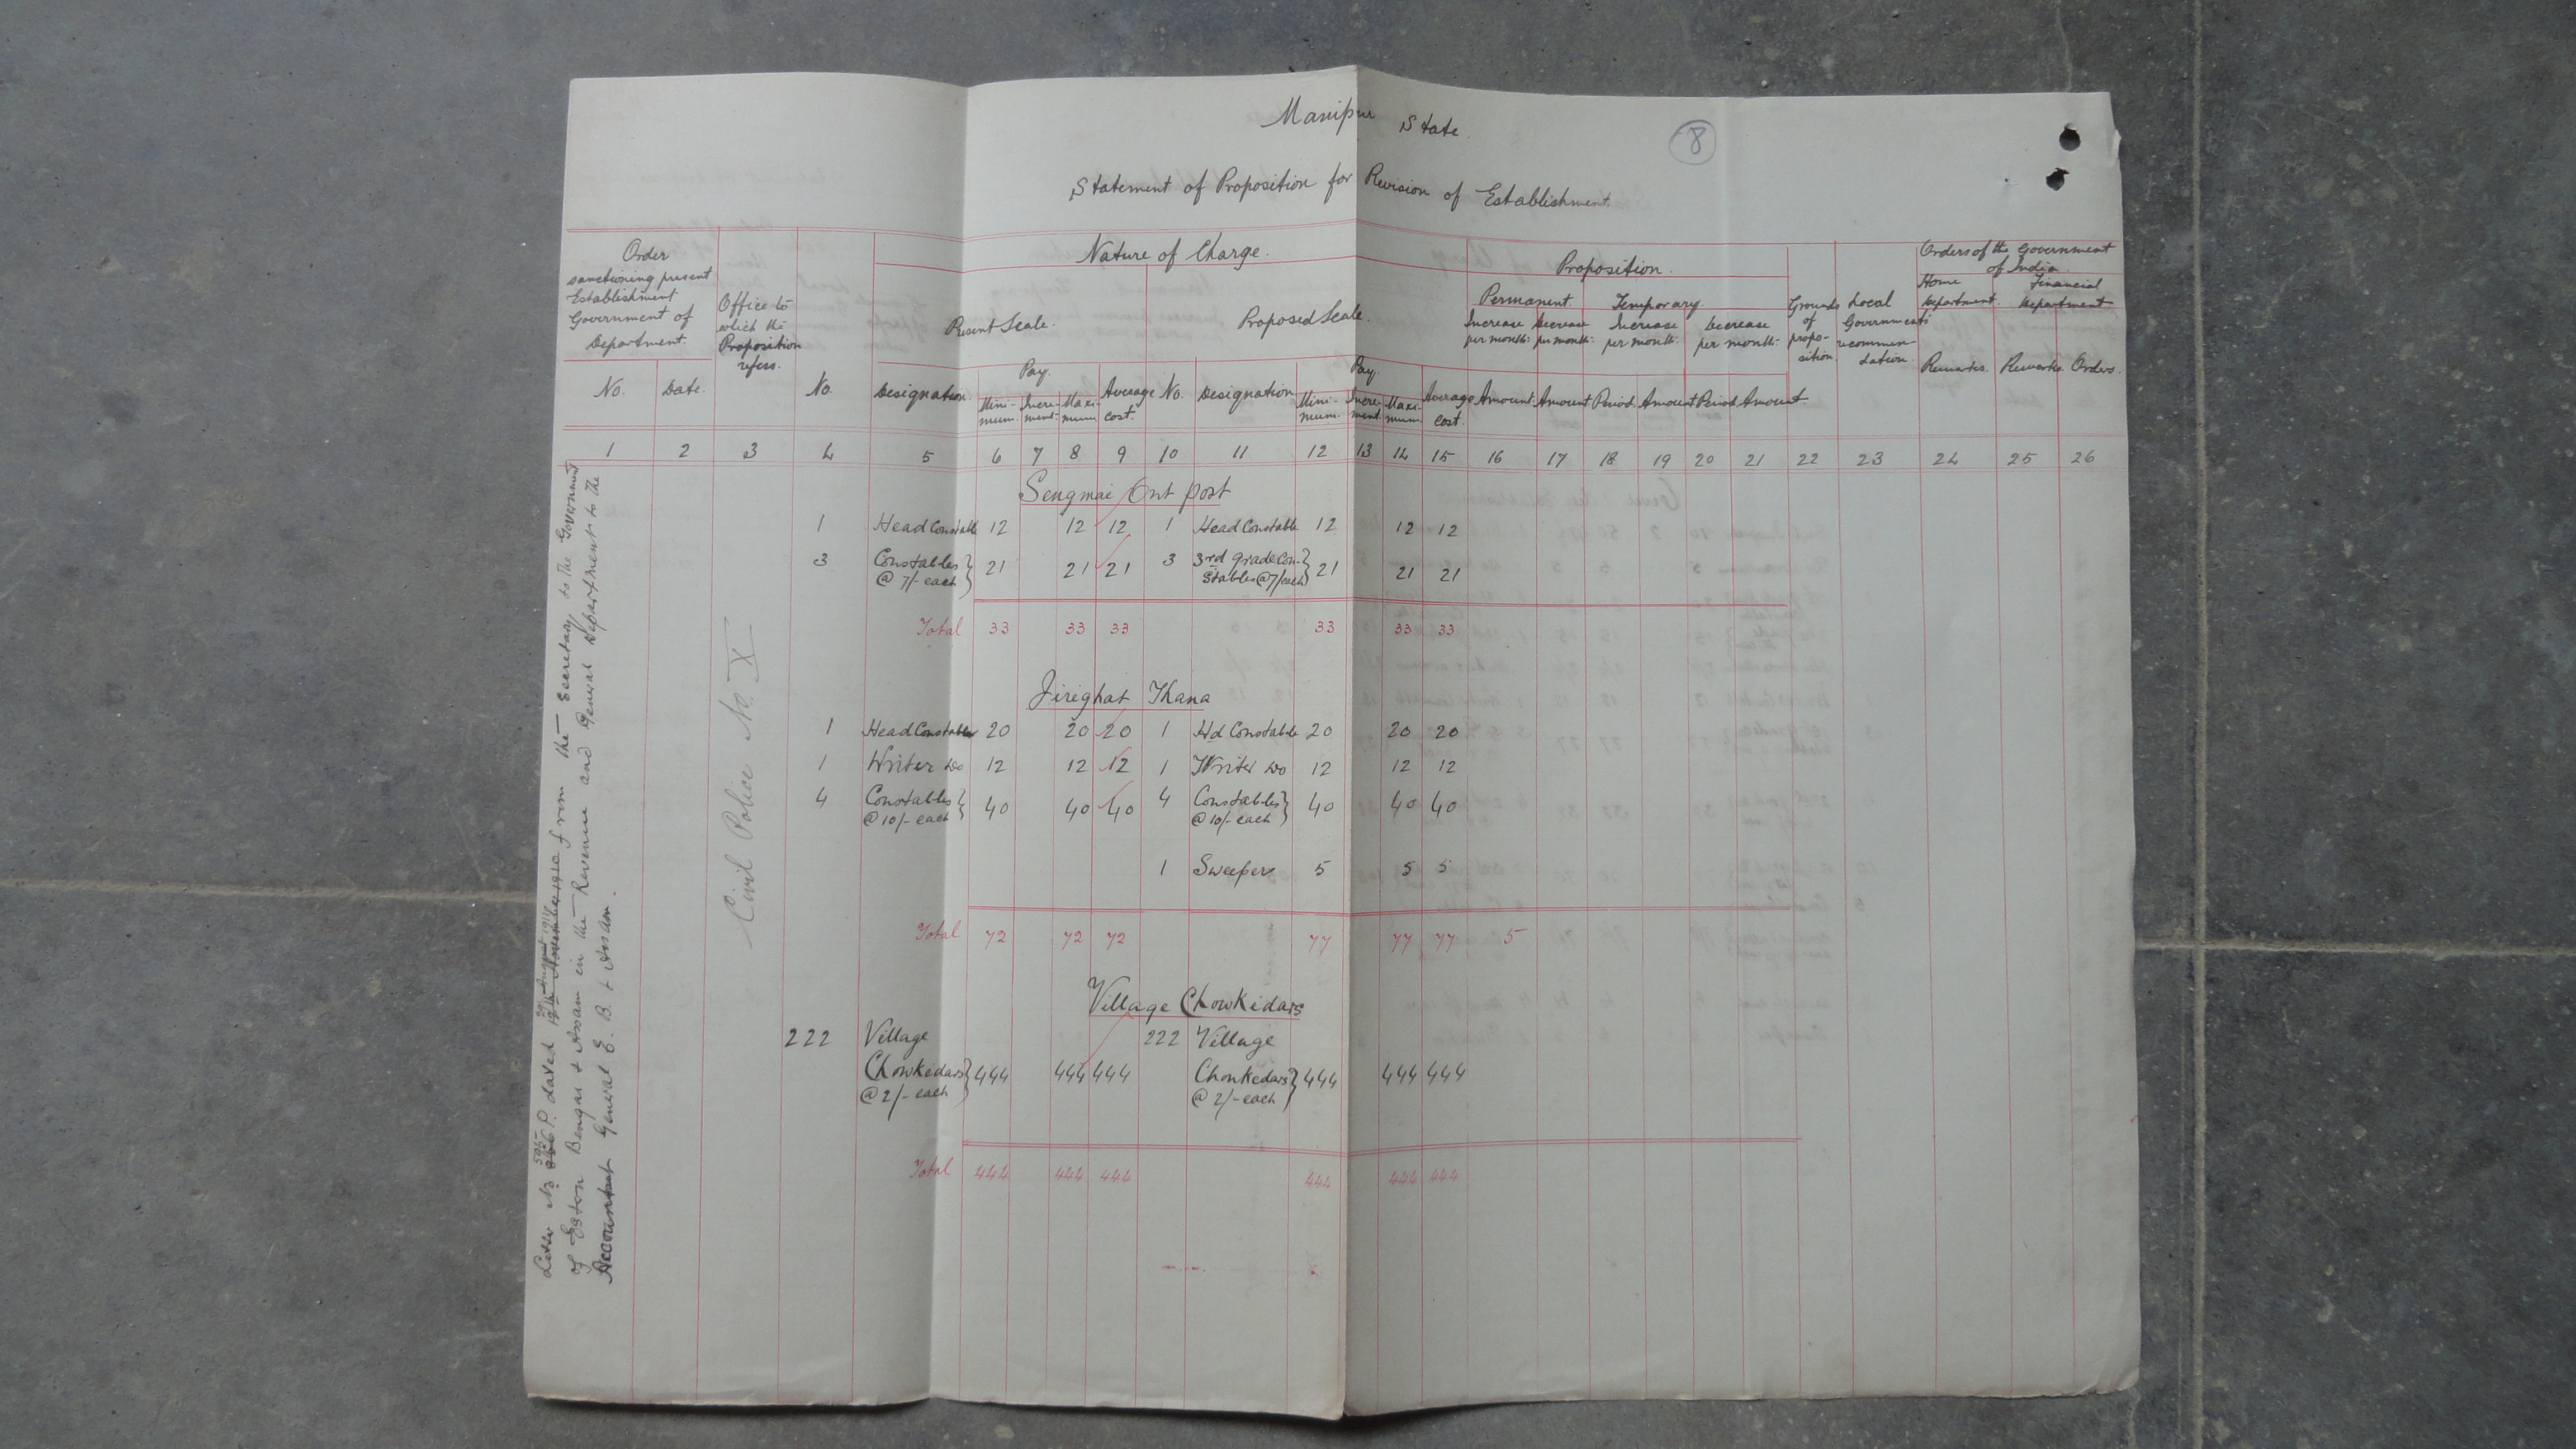 Manipur State.
8
Statement of Proposition for Revision of Establishment.
Order sanctioning present Establishment Government of Department.
Office to which the Proposition refers.
Nature of Charge.
Present Scale.
Proposed Scale.
Proposition.
Permanent Temporary.
Increase per month. Decrease per month. Increase per month. Decrease per month.
Grounds of proposition.
Local Government's recommendation.
Orders of the Government of India.
Home Department. Financial Department
No. Date. No. Designation. Pay. Minimum. Increment. Maximum Average Cost. No. Designation Pay. Minimum. Increment. Maximum Average Cost. Amount. Amount Period Amount Period Amount Remarks. Remarks. Orders.
1 2 3 4 5 6 7 8 9 10 11 12 13 14 15 16 17 18 19 20 21 22 23 24 25 26
Sengmai Out post
1 Head Constable 12 12 12 1 Head Constable 12 12 12
3 Constables @ 7/- each } 21 21 21 3 3rd grade Constables @ 7/ each } 21 21 21
Total 33 33 33 33 33 33
Jirighat Thana
1 Head Constable 20 20 20 1 Hd Constable 20 20 20
1 Writer Do 12 12 12 1 Writer Do 12 12 12
4 Constables @ 10/- each } 40 40 40 4 Constables @ 10/- each } 40 40 40
1 Sweeper 5 5 5
Total 72 72 72 77 77 77 5
Village Chowkidars
222 Village Chowkedars @ 2/- each } 444 444 444 222 Village Chowkedars @ 2/- each } 444 444 444
Total 444 444 444 444 444 444
Civil Police No. X
Letter No P. dated 19th November 1910 from the Secretary to the Government
of Eastern Bengal & Assam in the Revenue and General Department to the
Accountant General E. B. & Assam.